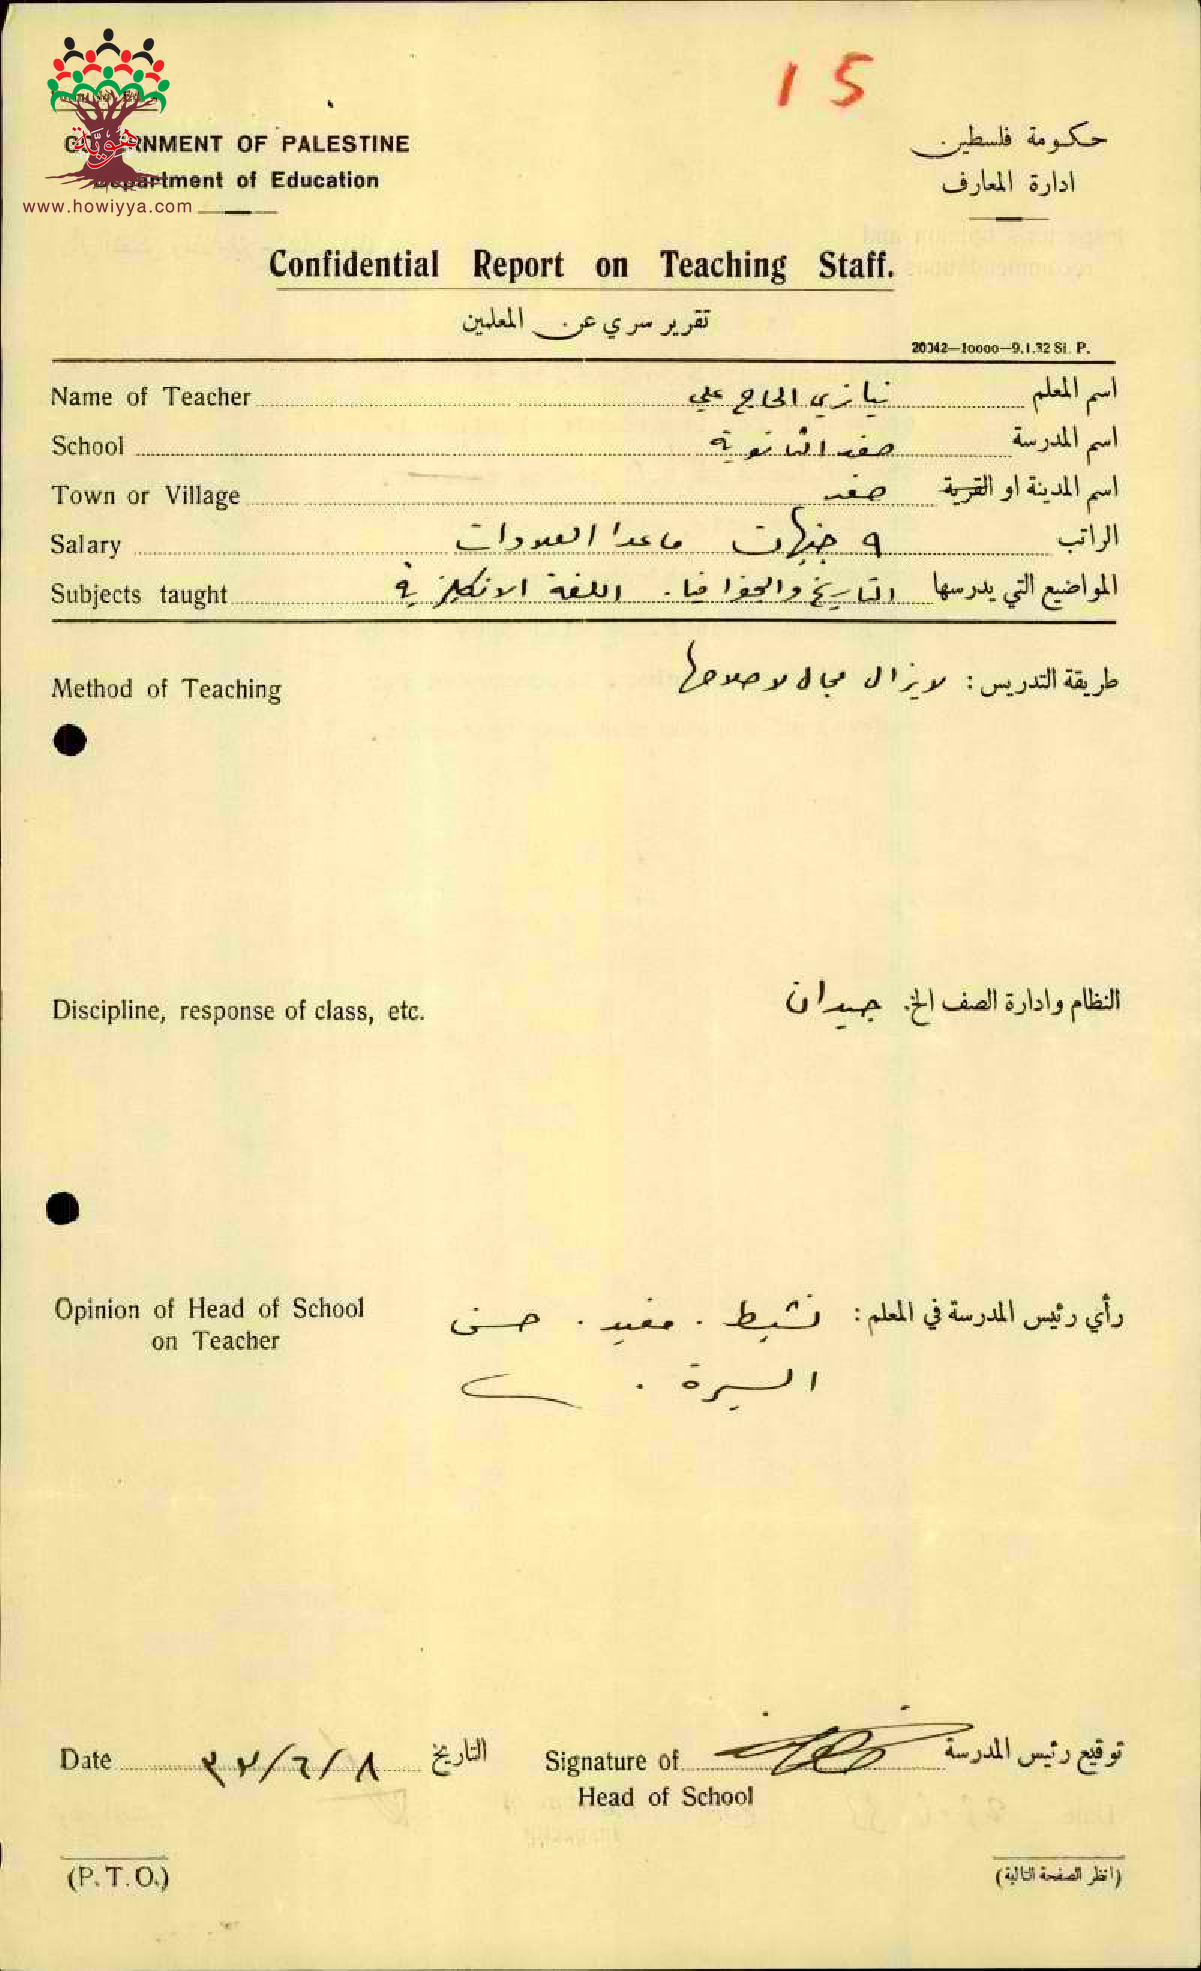 15
GOVERNMENT OF PALESTINE
Department of Education
حكومة فلسطين
ادارة المعارف
هوية
www.howiyya.com
Confidential Report on Teaching Staff.
تقرير سري عن المعلمين
20042—10000—9.1.32 Si. P.
Name of Teacher نيازي الحاج علي اسم المعلم
School صفد الثانوية اسم المدرسة
Town or Village صفد اسم المدينة او القرية
Salary ٩ جنيهات ماعدا العلاوات الراتب
Subjects taught التاريخ والجغرافيا. اللغة الانكليزية المواضيع التي يدرسها
Method of Teaching طريقة التدريس: لا يزال مجال لاصلاحها
Discipline, response of class, etc. النظام وادارة الصف الخ. جيدان
Opinion of Head of School رأي رئيس المدرسة في المعلم: نشيط. مفيد. حسن
on Teacher السيرة.
Date ٨/٦/٣٧ التاريخ Signature of توقيع رئيس المدرسة
Head of School
(P. T. O.) (انظر الصفحة التالية)